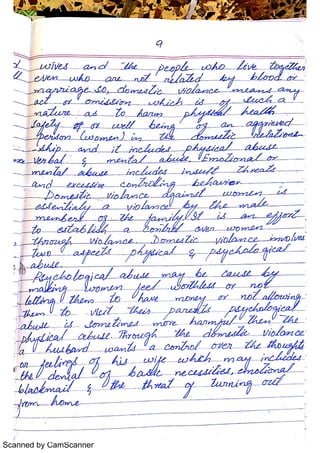 9
wives and the people who live together
even who are not related by blood or
marriage. So, domestic violance means any
act or omission which is of such a
nature as to harm physical health
Safety of or well being of an aggrieved
person (women) in the domestic relation-
ship and it includes physical abuse
verbal & mental abuse. Emotional or
mental abuse includes insult threats
and excessive controlling behavior.
Domestic violance against women is
essentialy a violance by the male
members of the family. It is an effort
to establish a control over women
through violance. Domestic violance involves
two aspects physical & psychological
abuse.
Psychological abuse may be cause by
making women feel worthless or not
letting them to have money or not allowing
them to visit their parents psychological
abuse is sometimes more harmful then the
physical abuse. Through the domestic violance
a husband wants a control over the thoughts
or feelings of his wife which may includes
the denial of basic necessities, emotional
blackmail & the threat of turning out
from home.
Scanned by CamScanner